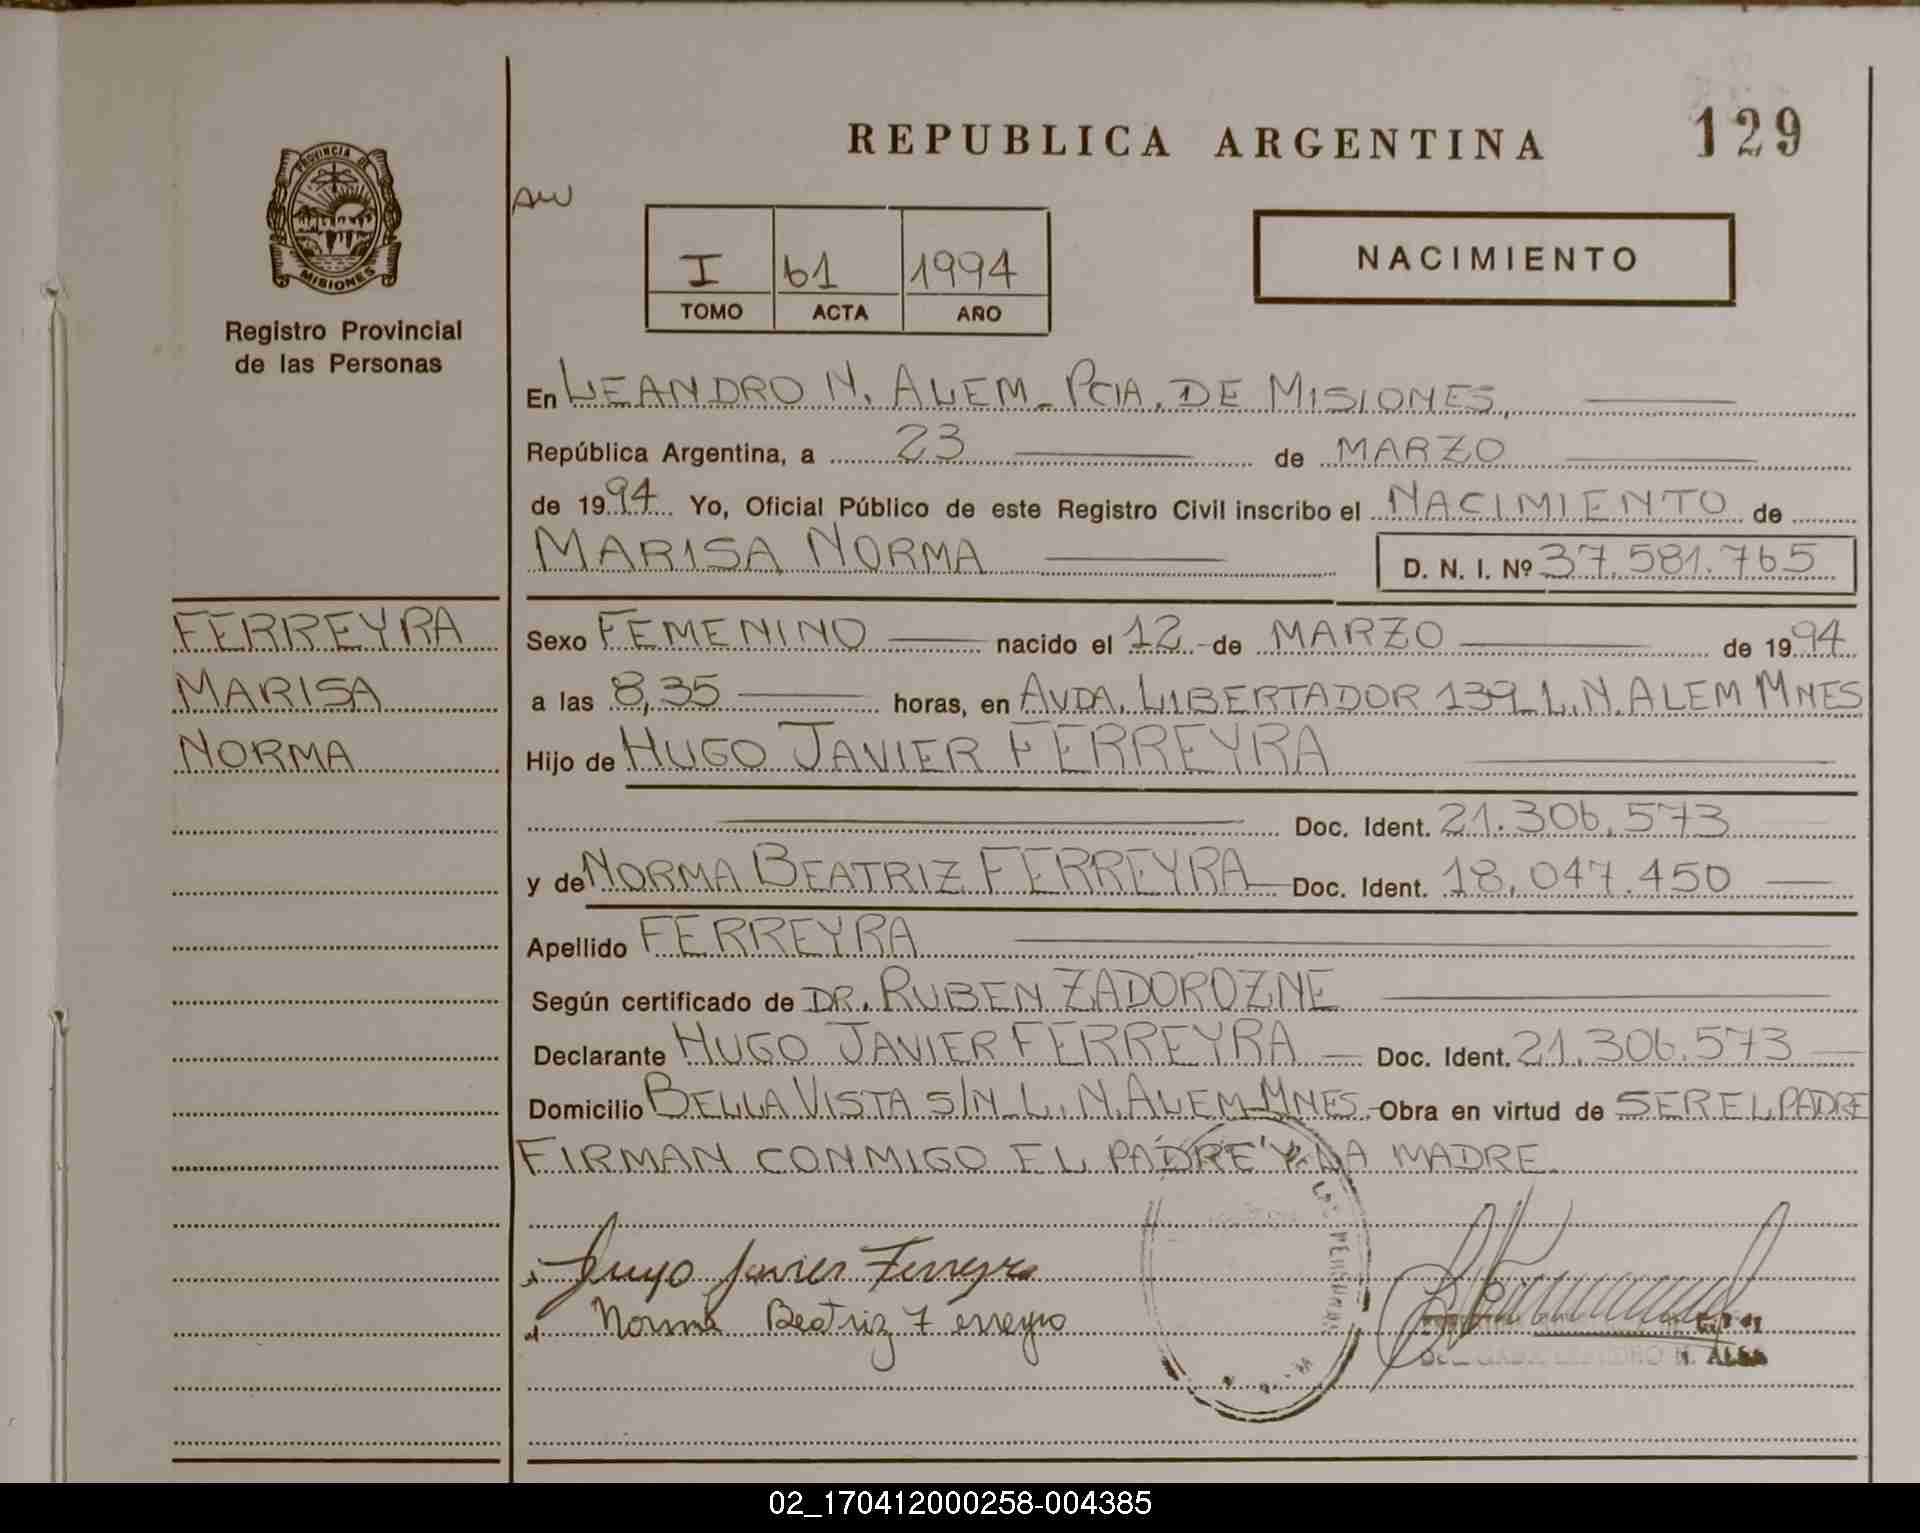 REPUBLICA ARGENTINA
129
PROVINCIA DE
MISIONES
Registro Provincial
de las Personas
I 61 1994
TOMO ACTA AÑO
NACIMIENTO
En LEANDRO N. ALEM - PCIA. DE MISIONES,
República Argentina, a 23 de MARZO
de 1994. Yo, Oficial Público de este Registro Civil inscribo el NACIMIENTO de
MARISA NORMA D. N. I. Nº 37.581.765
FERREYRA
MARISA
NORMA
Sexo FEMENINO nacido el 12 de MARZO de 1994
a las 8,35 horas, en AVDA. LIBERTADOR 139 - L.N. ALEM MNES
Hijo de HUGO JAVIER FERREYRA
Doc. Ident. 21.306.573
y de NORMA BEATRIZ FERREYRA Doc. Ident. 18.047.450
Apellido FERREYRA
Según certificado de DR. RUBEN ZADOROZNE
Declarante HUGO JAVIER FERREYRA Doc. Ident. 21.306.573
Domicilio BELLA VISTA S/N - L. N. ALEM - MNES - Obra en virtud de SER EL PADRE
FIRMAN CONMIGO EL PADRE Y LA MADRE
Hugo Javier Ferreyra
Norma Beatriz Ferreyra
02_170412000258-004385